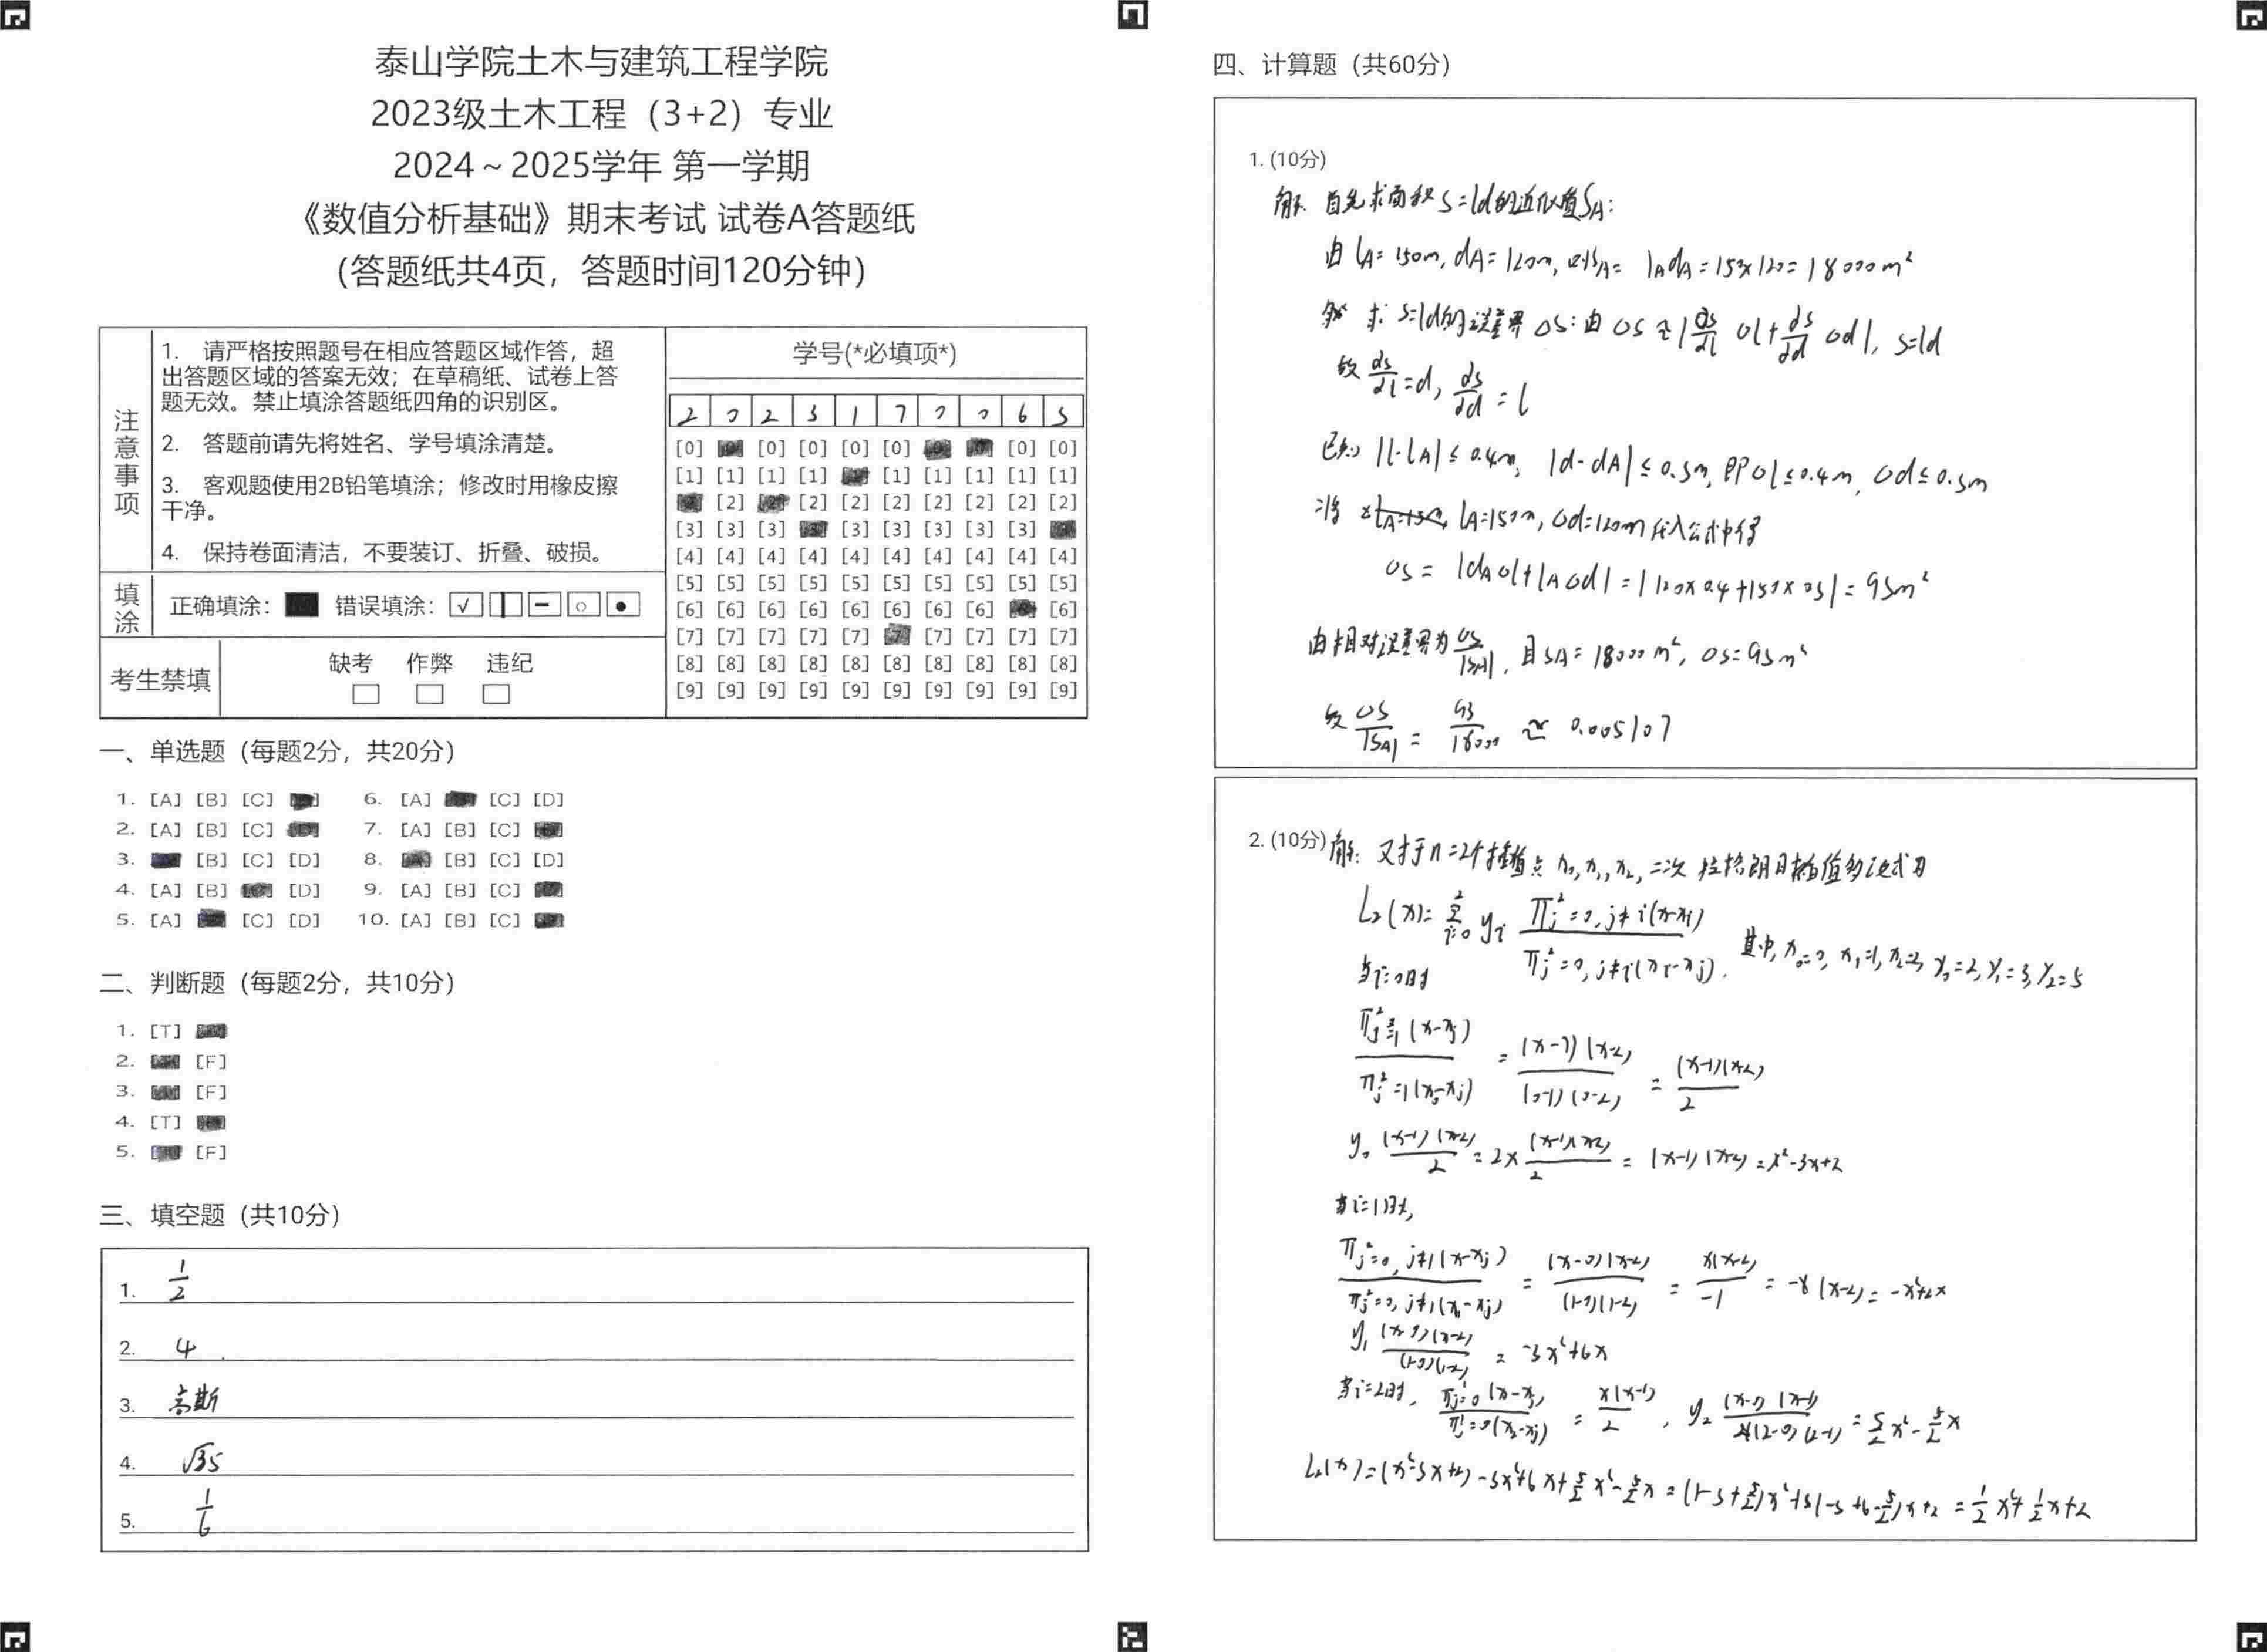 泰山学院土木与建筑工程学院
2023级土木工程（3+2）专业
2024～2025学年 第一学期
《数值分析基础》期末考试 试卷A答题纸
（答题纸共4页，答题时间120分钟）
注意事项
1. 请严格按照题号在相应答题区域作答，超
出答题区域的答案无效；在草稿纸、试卷上答
题无效。禁止填涂答题纸四角的识别区。
2. 答题前请先将姓名、学号填涂清楚。
3. 客观题使用2B铅笔填涂；修改时用橡皮擦
干净。
4. 保持卷面清洁，不要装订、折叠、破损。
填涂
正确填涂： 错误填涂：
考生禁填
缺考 作弊 违纪
学号(*必填项*)
2 0 2 3 1 7 0 0 6 3
[0] [0] [0] [0] [0] [0] [0]
[1] [1] [1] [1] [1] [1] [1] [1] [1]
[2] [2] [2] [2] [2] [2] [2] [2]
[3] [3] [3] [3] [3] [3] [3] [3]
[4] [4] [4] [4] [4] [4] [4] [4] [4] [4]
[5] [5] [5] [5] [5] [5] [5] [5] [5] [5]
[6] [6] [6] [6] [6] [6] [6] [6] [6]
[7] [7] [7] [7] [7] [7] [7] [7] [7] [7]
[8] [8] [8] [8] [8] [8] [8] [8] [8] [8]
[9] [9] [9] [9] [9] [9] [9] [9] [9] [9]
一、单选题（每题2分，共20分）
1. [A] [B] [C] 6. [A] [C] [D]
2. [A] [B] [C] 7. [A] [B] [C]
3. [B] [C] [D] 8. [A] [B] [C] [D]
4. [A] [B] [D] 9. [A] [B] [C]
5. [A] [C] [D] 10. [A] [B] [C]
二、判断题（每题2分，共10分）
1. [T]
2. [F]
3. [F]
4. [T]
5. [F]
三、填空题（共10分）
1. 1/2
2. 4
3. 高斯
4. √35
5. 1/6
四、计算题（共60分）
1. (10分)
解: 首先求面积S=ld的近似值SA:
由lA=150m, dA=120m, SA= lAdA=150×120=18000m²
求S=ld的误差界△S: 由△S≈|ds/dl △l+ds/dd △d|, S=ld
故ds/dl=d, ds/dd=l
已知|l-lA|≤0.4m, |d-dA|≤0.3m, 即△l≤0.4m, △d≤0.3m
将 lA=150m, △d=120m代入公式中得
△S=|dA△l+lA△d|=|120×0.4+150×0.3|=93m²
由相对误差界为△S/|SA|, 且SA=18000m², △S=93m²
故△S/|SA|=93/18000≈0.005107
2. (10分) 解: 对于n=2个插值点x₀,x₁,x₂,二次拉格朗日插值多项式为
L₂(x)=Σ²i=0 yi Π²j=0,j≠i(x-xj)/Π²j=0,j≠i(xi-xj). 其中,x₀=0, x₁=1, x₂=2, y₀=2, y₁=3, y₂=5
当i=0时
Π²j=1(x-xj)/Π²j=1(x₀-xj) = (x-1)(x-2)/(0-1)(0-2) = (x-1)(x-2)/2
y₀ (x-1)(x-2)/2 = 2×(x-1)(x-2)/2 = (x-1)(x-2)=x²-3x+2
当i=1时,
Π²j=0,j≠1(x-xj)/Π²j=0,j≠1(x₁-xj) = (x-0)(x-2)/(1-0)(1-2) = x(x-2)/-1 = -x(x-2)=-x²+2x
y₁ (x-0)(x-2)/(1-0)(1-2) = -3x²+6x
当i=2时, Π¹j=0(x-xj)/Π¹j=0(x₂-xj) = x(x-1)/2, y₂ (x-0)(x-1)/(2-0)(2-1) = 5/2x²-5/2x
L₂(x)=(x²-3x+2)-3x²+6x+5/2x²-5/2x=(1-3+5/2)x²+(-3+6-5/2)x+2=1/2x²+1/2x+2